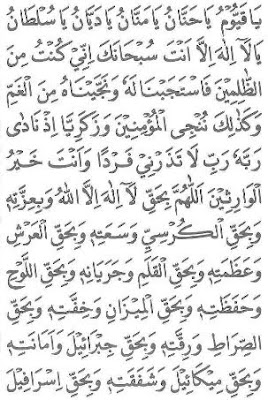 يَا قَيُّوْمُ يَا حَنَّانُ يَا مَنَّانُ يَا دَيَّانُ يَا سُلْطَانُ
يَا لَآ اِلٰهَ اِلَّا اَنْتَ سُبْحَانَكَ اِنِّيْ كُنْتُ مِنَ
الظّٰلِمِيْنَ فَاسْتَجَبْنَا لَهٗ وَنَجَّيْنَاهُ مِنَ الْغَمِّ
وَكَذٰلِكَ نُنْجِى الْمُؤْمِنِيْنَ وَزَكَرِيَّا اِذْ نَادٰى
رَبَّهٗ رَبِّ لَا تَذَرْنِيْ فَرْدًا وَاَنْتَ خَيْرُ
الْوَارِثِيْنَ اَللّٰهُمَّ بِحَقِّ لَآ اِلٰهَ اِلَّا اللهُ وَبِعِزَّتِهٖ
وَبِحَقِّ الْكُرْسِيِّ وَسَعَتِهٖ وَبِحَقِّ الْعَرْشِ
وَعَظَمَتِهٖ وَبِحَقِّ الْقَلَمِ وَجَرَيَانِهٖ وَبِحَقِّ اللَّوْحِ
وَحَفَظَتِهٖ وَبِحَقِّ الْمِيْزَانِ وَخِفَّتِهٖ وَبِحَقِّ
الصِّرَاطِ وَرِقَّتِهٖ وَبِحَقِّ جِبْرَائِيْلَ وَاَمَانَتِهٖ
وَبِحَقِّ مِيْكَائِيْلَ وَشَفَقَتِهٖ وَبِحَقِّ اِسْرَافِيْلَ